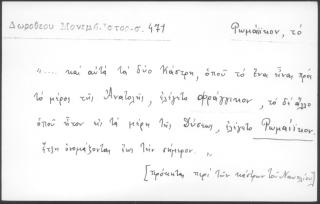 Δωροθέου Μονεμβ. Ἱστορ. σ. 471
Ῥωμαίϊκον, τό
"... καὶ αὐτὰ τὰ δύο κάστρη, ὁποῦ τὸ ἕνα εἶναι πρὸς
τὸ μέρος τῆς Ἀνατολῆς, ἐλέγετο Φράγγικον, τὸ δὲ ἄλλο
ὁποῦ ἦτον εἰς τὰ μέρη τῆς Δύσεως, ἐλέγετο Ῥωμαίϊκον.
ἔτζη ὀνομάζονται ἕως τὴν σήμερον. "
[πρόκειται περὶ τῶν κάστρων τοῦ Ναυπλίου]